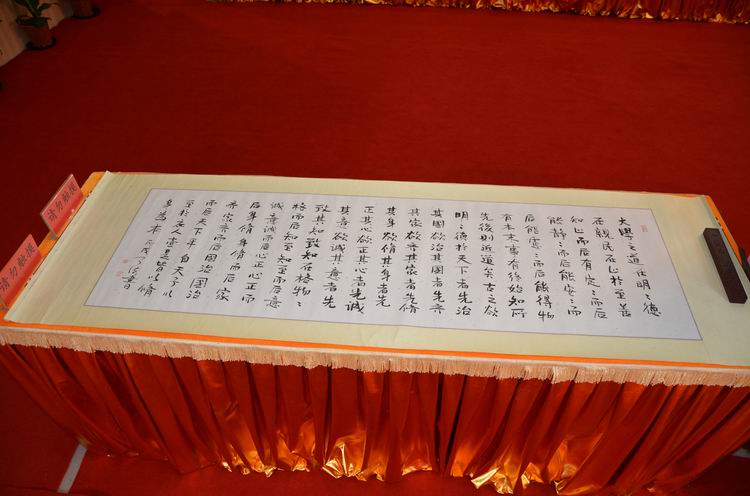 大學之道在明〻德
在親民在止於至善
知止而后有定〻而后
能靜〻而后能安〻而
后能慮〻而后能得物
有本末事有終始知所
先後則近道矣古之欲
明〻德於天下者先治
其國欲治其國者先齊
其家欲齊其家者先脩
其身欲脩其身者先
正其心欲正其心者先誠
其意欲誠其意者先
致其知致知在格物〻
格而后知至知至而后意
誠意誠而后心正心正而
后身脩身脩而后家
齊家齊而后國治國治
而后天下平自天子以
至於庶人壹是皆以脩
身為本
请勿触摸
请勿触摸